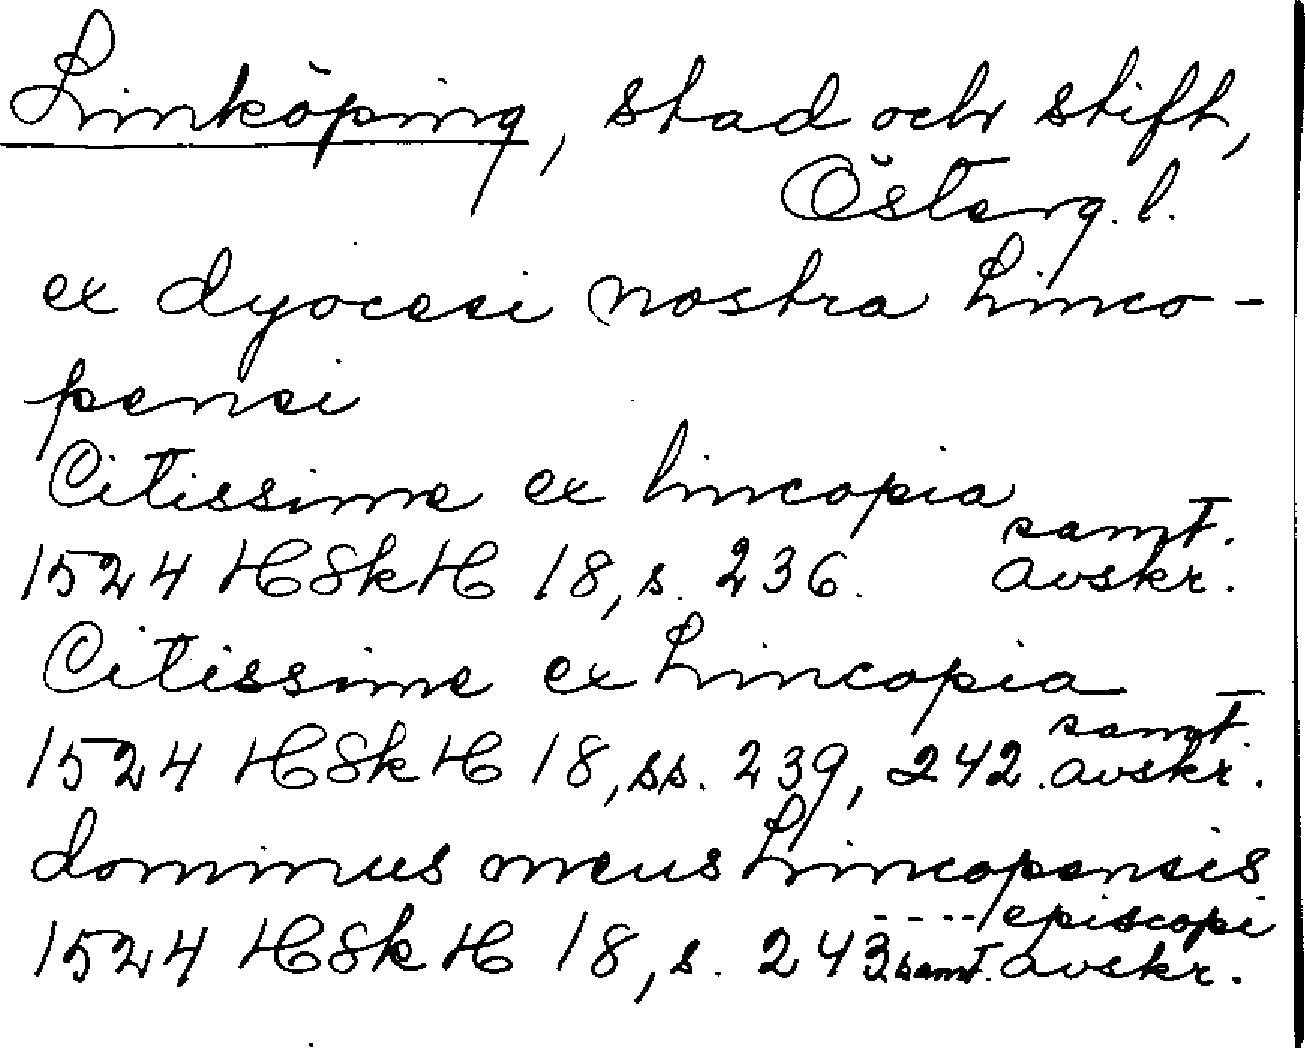 Linköping, stad och stift,
Österg. l.
ex dyocesi nostra Linco-
pensi
Citissime ex lincopia
1524 HSkH 18, s. 236. samt. avskr.
Citissime ex Lincopia
1524 HSkH 18, ss. 239, 242. samt. avskr.
dominus meus Lincopensis
---- episcopi
1524 HSkH 18, s. 243 samt. avskr.